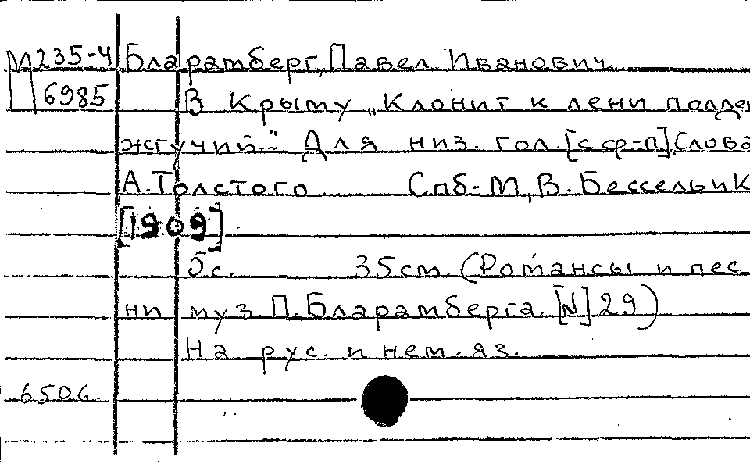 М 235-4 Бларамберг, Павел Иванович
6985 В Крыму „Клонит к лени полден
жгучий..." Для низ. гол. [с ф-п]. Слова
А. Толстого Спб.-М., В. Бессель и К
[1909]
5с. 35см. (Романсы и пес
ни муз. П. Бларамберга. [N] 29)
На рус. и нем. яз.